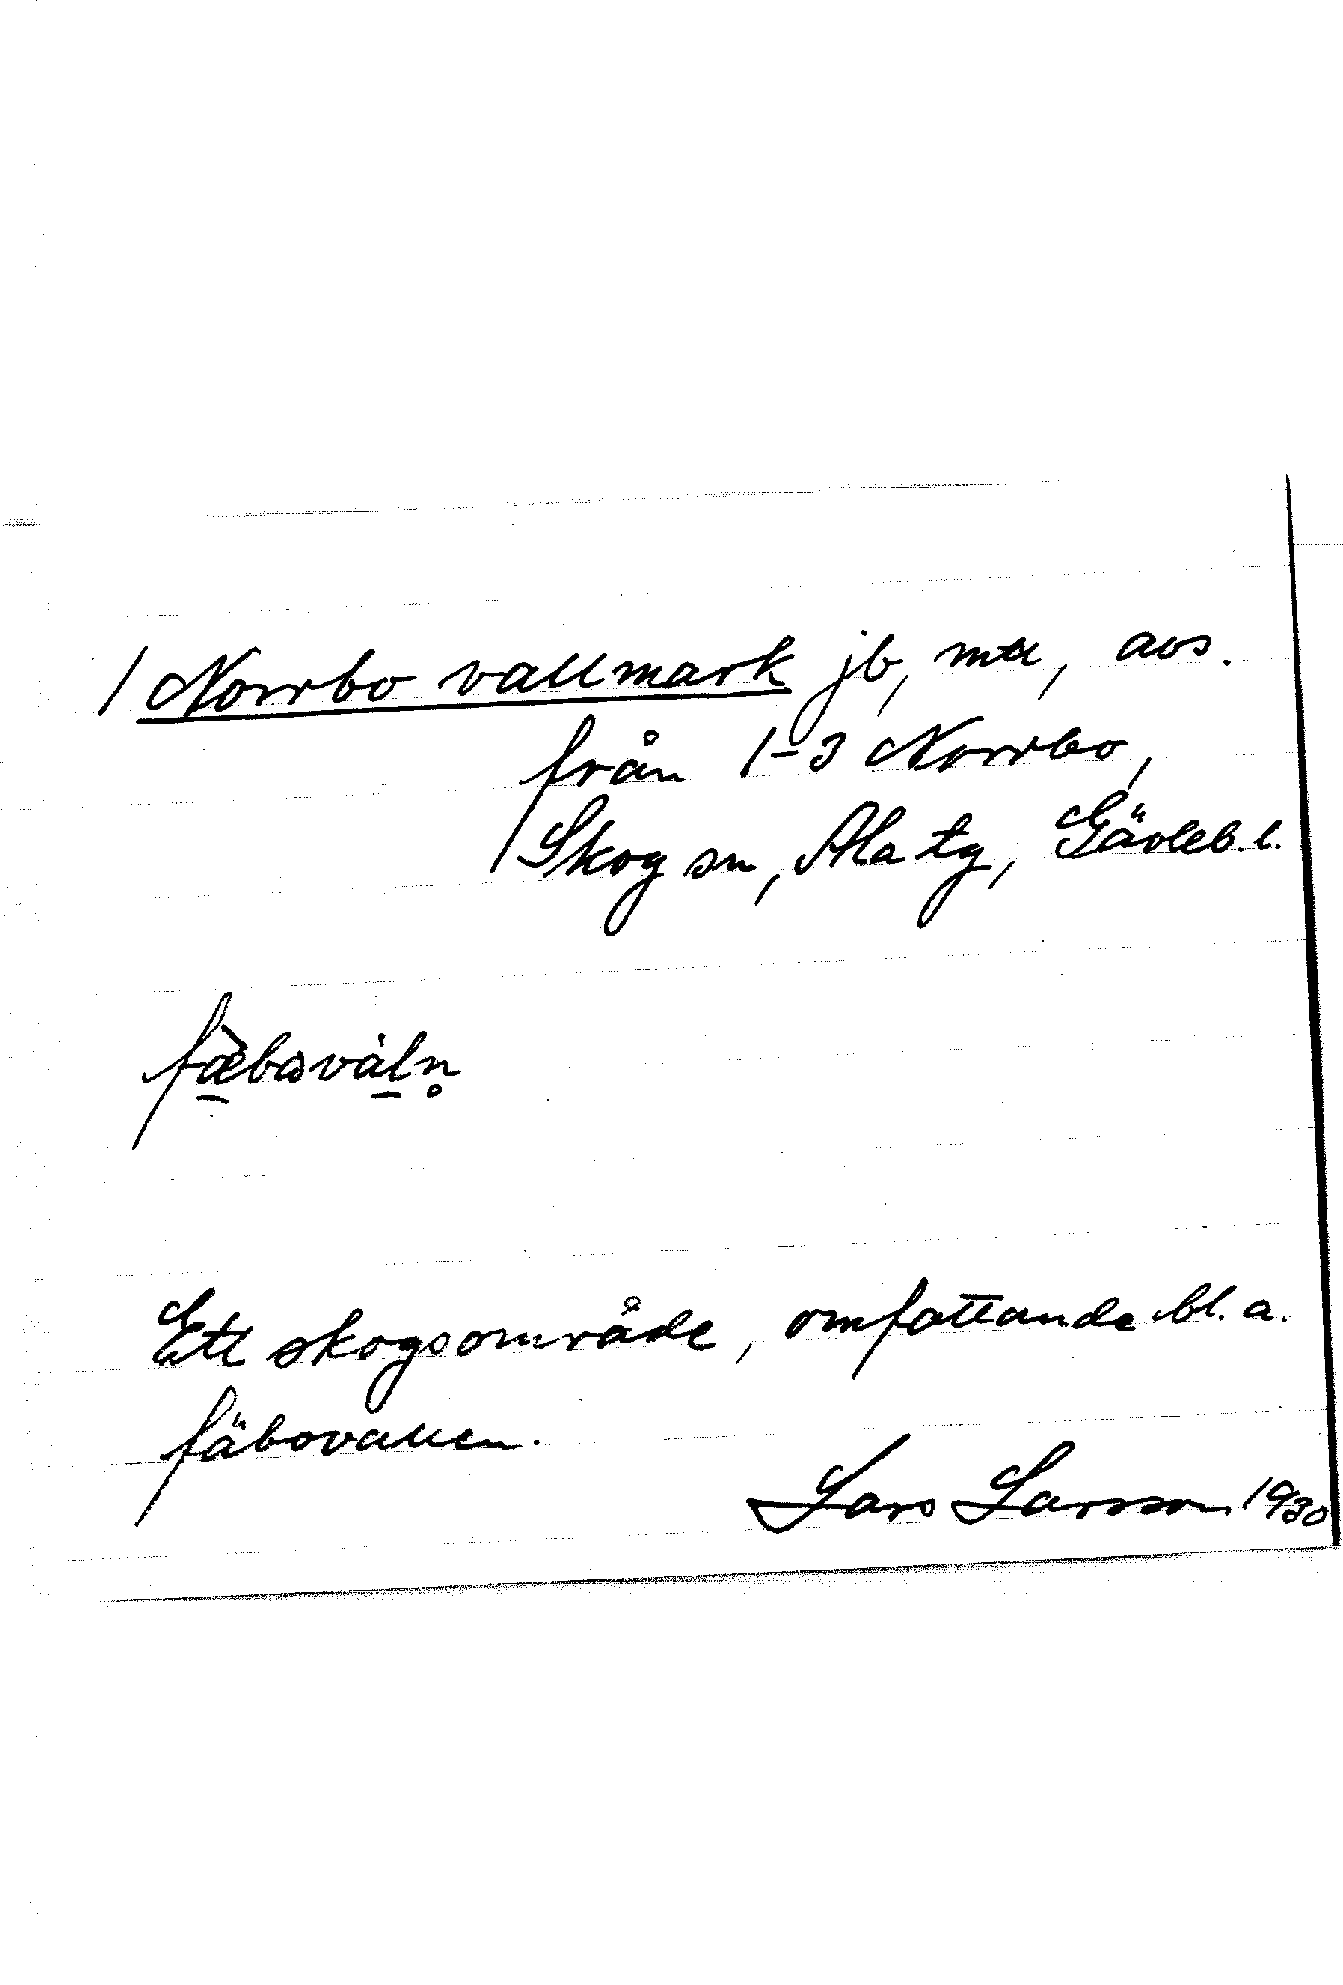 1 Norrbo vallmark jb, mtl, avs.
från 1-3 Norrbo,
Skog sn, Ala tg, Gävleb. l.
fæ̀bωvàln̥
Ett skogsområde, omfattande bl. a.
fäbovallen.
Lars Larsson 1930